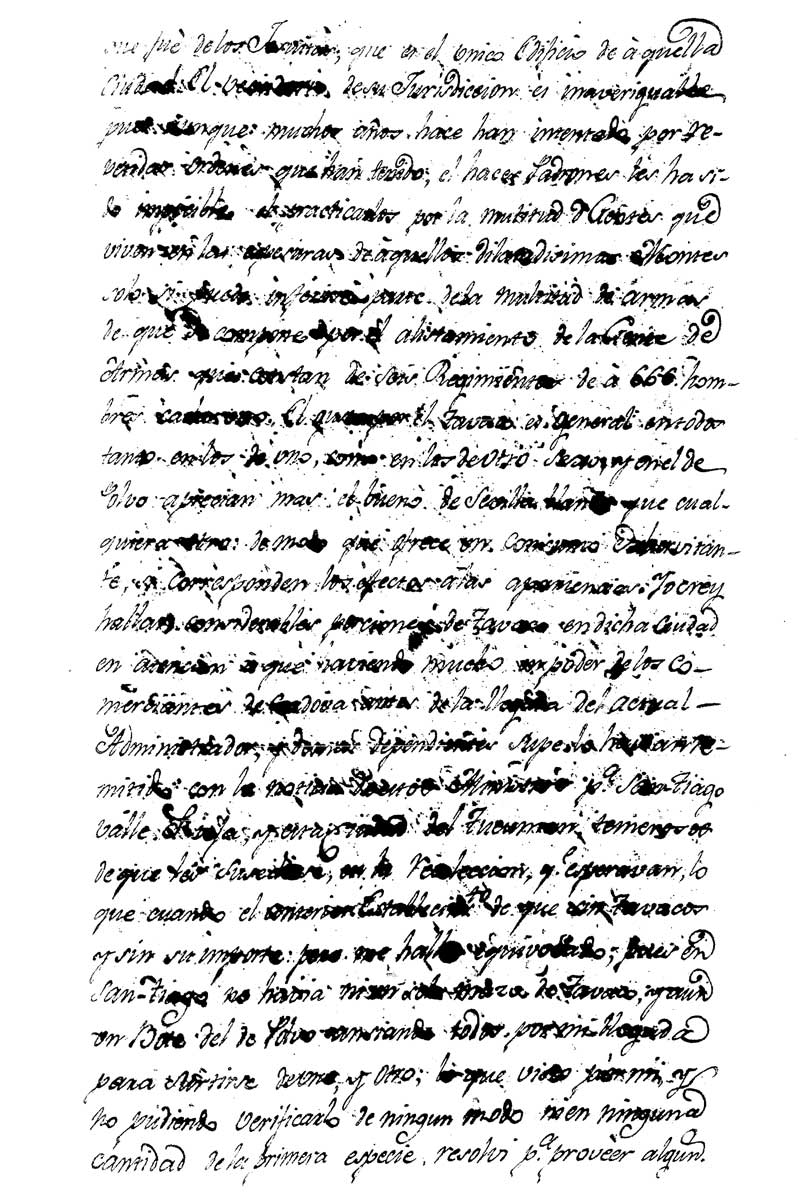 que fuè de los que es el unico Edificio de àquella
Ciudad. El Vecindario de su Jurisdiccion es inaveriguable
pues aunque muchos años hace han intentado por re-
petidas ordenes que han tenido, el hacer Padrones les ha si-
do imposible el practicarlos por la multitud d Gentes que
viven en las de àquellos dilatadisimos Montes
solo si puede inferirse parte de la multitud de armas
de que se compone por el alistamiento de la Gente de
Armas que constan de seis Regimientos de à 666 hom-
bres cada uno. El gusto por el Tavaco es general en todos
tanto en los de uno, como en los de otro Sexo; y en el de
Polvo aprecian mas el bueno de Sevilla que qual-
quiera otro: de modo que ofrece un consumo exhorvitan-
te, si corresponden los efectos a las apariencias. Yo crey
hallar considerables porciones de Tavaco en dicha Ciudad
en atencion à que haviendo mucho en poder de los Co-
merciantes de Cordova antes de la llegada del actual
Administrador, y demas dependientes supe lo havian re-
mitido con la noticia de estos pª San-Tiago
Valle, Rioja, y esta Ciudad del Tucuman, temerosos
de que les en la Recoleccion, q.e esperavan, lo
que cuando el Establecimto de que sin Tavacos
y sin su importe: pero me hallè equivocado; pues en
San-Tiago no havia ni un solo de Tavaco, y aun
un Bote del de Polvo ansiando todos por mi llegada
para surtirse de uno, y otro; lo que visto por mi, y
no pudiendo verificarlo de ningun modo ni en ninguna
cantidad de la primera especie, resolvi pª provèer algun.